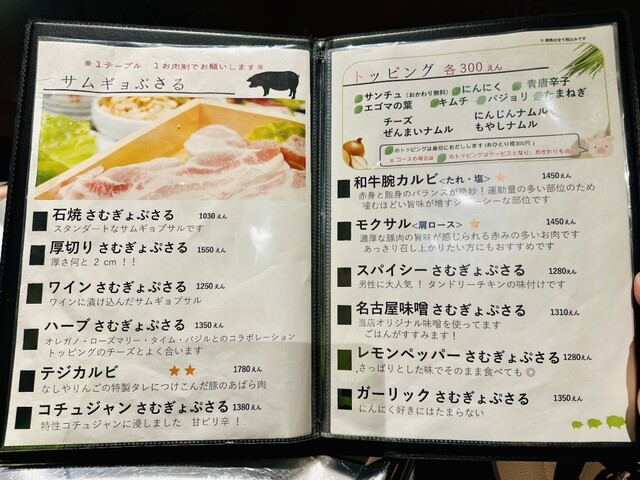 ※1テーブル 1お肉制でお願いします※
サムギョぷさる
石焼 さむぎょぷさる 1030えん
スタンダートなサムギョプサルです
厚切り さむぎょぷさる 1550えん
厚さ何と 2 cm!!
ワイン さむぎょぷさる 1250えん
ワインに漬け込んだサムギョプサル
ハーブ さむぎょぷさる 1350えん
オレガノ・ローズマリー・タイム・バジルとのコラボレーション
トッピングのチーズとよく合います
テジカルビ ★★ 1780えん
なしやりんごの特製タレにつけこんだ豚のあばら肉
コチュジャン さむぎょぷさる 1380えん
特性コチュジャンに浸しました 甘ピリ辛!
※価格は全て税込みです
トッピング 各300えん
サンチュ(おかわり無料) にんにく 青唐辛子
エゴマの葉 キムチ パジョリ たまねぎ
チーズ にんじんナムル
ぜんまいナムル もやしナムル
のトッピングは最初におだしします(おひとり様300円)
※コースの場合は のトッピングはサービスとなり、おかわりも
和牛腕カルビ<たれ・塩> ★ 1450えん
赤身と脂身のバランスが絶妙!運動量の多い部位のため
噛むほどい旨味が増すジューシーな部位です
モクサル<肩ロース> ★ 1450えん
濃厚な豚肉の旨味が感じられる赤みの多いお肉です
あっさり召し上かりたい方にもおすすめです
スパイシー さむぎょぷさる 1280えん
男性に大人気!タンドリーチキンの味付けです
名古屋味噌 さむぎょぷさる 1310えん
当店オリジナル味噌を使ってます
ごはんがすすみます!
レモンペッパー さむぎょぷさる 1280えん
さっぱりとした味でそのまま食べても◎
ガーリック さむぎょぷさる 1350えん
にんにく好きにはたまらない